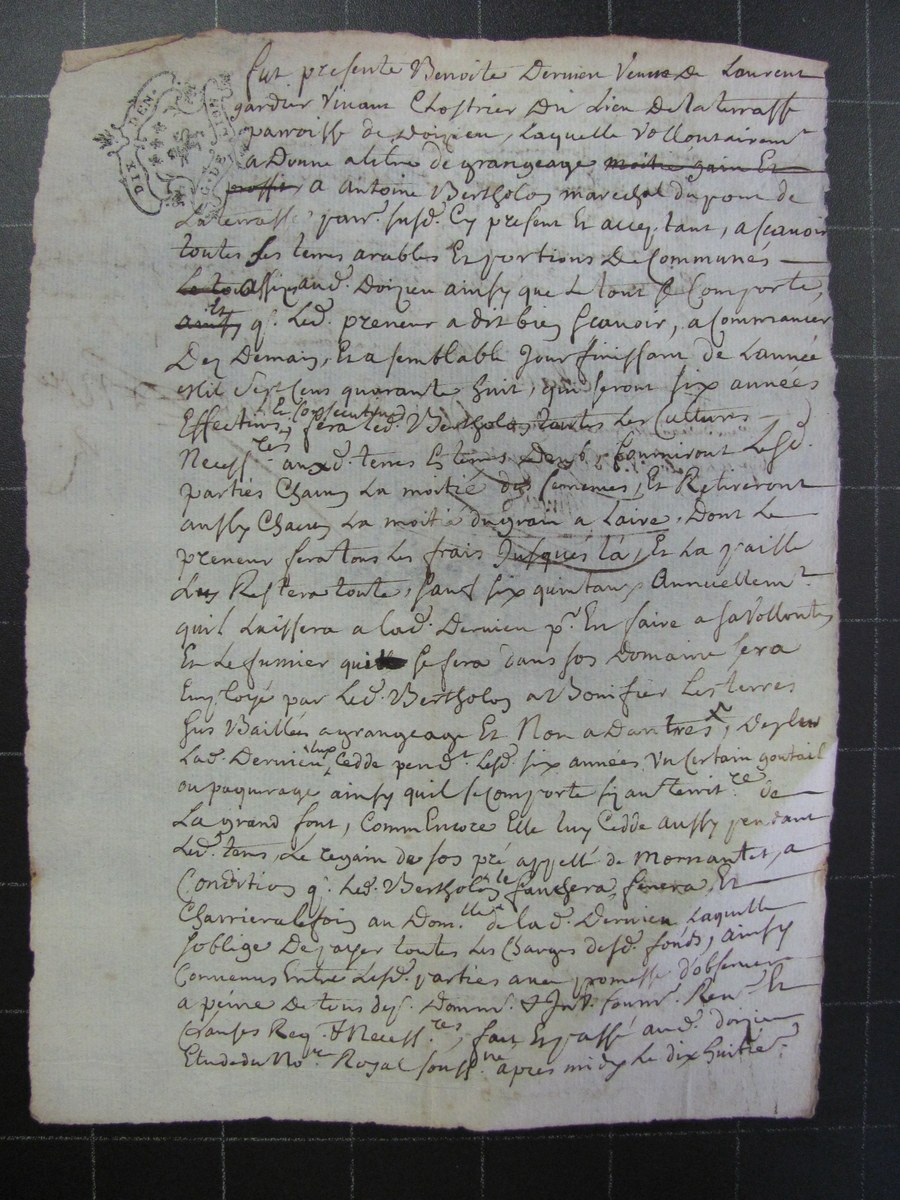 DIX DEN. GEN. DE
fut presente Benoite Dernieu Veuve De Laurent
gardier Vivant Chostrier Du Lieu De la terrasse
parroisse de Doizieu, Laquelle Vollontairemt
a Donné a titre de grangeage moitie gain Et
proffit a Antoine Bertholon marechal du pont de
La terrasse parr. susd. Cy present Et acceptant, a scavoir
toutes Ses terres arables Et portions De Communes
assix aud. Doizieu ainsy que Le tout se Comporte,
ainsy q. Led. preneur a dit bien scavoir, a Commancer
Dez Demain, Et a semblable Jour finissant de L'année
mil sept cens quarante huit, qui seront six années
Effectives, Et Consecutives fera Led. Bertholon toutes Les Cultures
Necessres auxd. terres fourniront Lesd.
parties Chacun La moitié des semences, Et Retireront
aussy Chacun La moitié du grain a Laire, Dont Le
preneur fera tous Les frais Jusques là, Et La paille
Luy Restera toute, sauf six quintaux Annuellemt
quil Laissera a lad. Dernieu pr. En faire a sa Vollonté
Et Le fumier qui se fera dans son Domaine sera
Employé par Led. Bertholon a Bonifier Les terres
sus Baillées a grangeage Et Non a Dautres, Deplus
Lad. Dernieu luy Cedde pendt Lesd. six années Un Certain goutail
ou paquerage ainsy quil se Comporte sy au territre de
La grand font, Comm Encore Elle luy Cedde aussy pendant
Led. tems, Le regain de son pré appellé de Mornantet, a
Condition q. Led. Bertholon le fauchera, fenera Et
Charriera le foin au Domlle de la d. Dernieu Laquelle
soblige De payer toutes Les Charges desd. fonds, ainsy
Convenus Entre Lesd. parties avec promesse d'observer
a peine De tous dep. Domm. & Int. soum. Ren. Et
Clauses Req. & Necessres, fait Et passé aud. doizieu
Etude du Nore Royal soussné apres midy Le dix huitie.